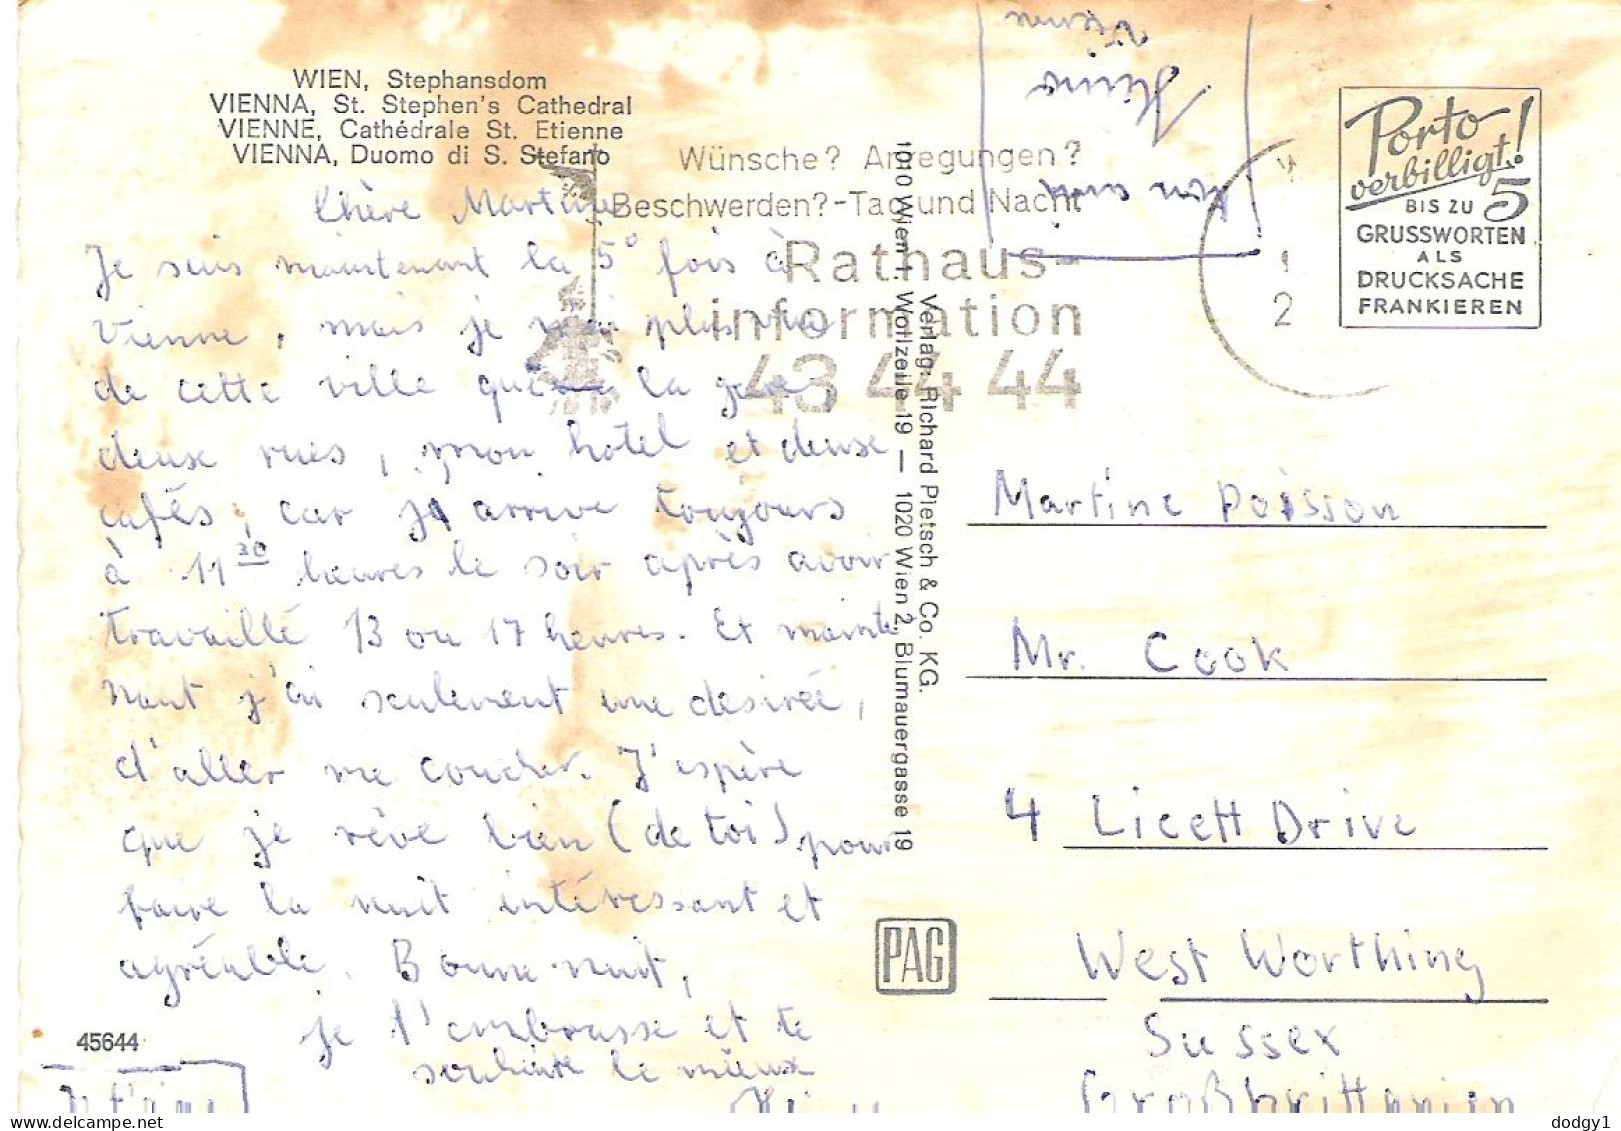 WIEN, Stephansdom
VIENNA, St. Stephen's Cathedral
VIENNE, Cathédrale St. Etienne
VIENNA, Duomo di S. Stefano
Chère Martine
Je suis maintenant la 5° fois à
Vienne, mais je plus
de cette ville que la gare
deux rues, mon hôtel et deuxe
cafés, car j'arrive toujours
à 11 30 heures le soir après avoir
travaillé 13 ou 17 heures. Et mainte
nant j'ai seulement une desirée,
d'aller me coucher. J'espère
que je rêve bien (de toi) pour
faire la nuit intéressant et
agréable. Bonne nuit,
je t'embrasse et te
souhaite le mieux
45644
Je t'aime
Wünsche? Anregungen?
Beschwerden?-Tag und Nacht
Rathaus-
information
43 44 44
Verlag: Richard Pietsch & Co. KG.
1010 Wien 1, Wollzeile 19 — 1020 Wien 2, Blumauergasse 19
PAG
2
Porto
verbilligt!
BIS ZU 5
GRUSSWORTEN
ALS
DRUCKSACHE
FRANKIEREN
Martine Poisson
Mr. Cook
4 Licett Drive
West Worthing
Sussex
Großbrittanien
dodgy1